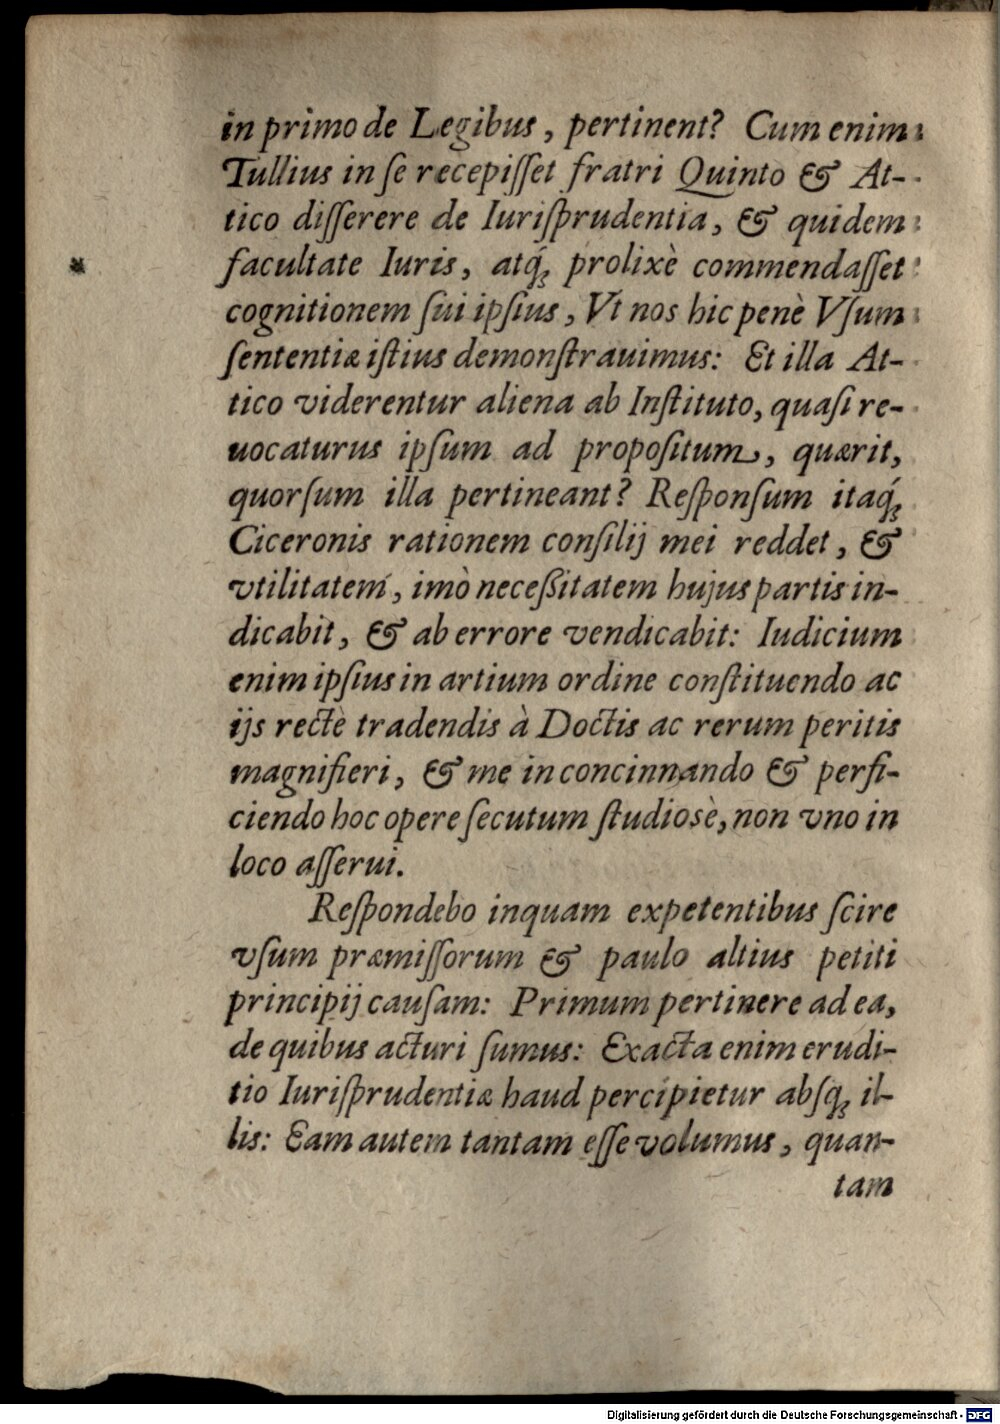 in primo de Legibus, pertinent? Cum enim
Tullius in ſe recepiſſet fratri Quinto & At-
tico diſſerere de Iuriſprudentia, & quidem
facultate Iuris, atq́ꝫ prolixè commendaſſet
cognitionem ſui ipſius, Vt nos hic penè Vſum
ſententiæ iſtius demonſtrauimus: Et illa At-
tico viderentur aliena ab Inſtituto, quaſi re-
uocaturus ipſum ad propoſitum, quærit,
quorſum illa pertineant? Reſponſum itaq́ꝫ
Ciceronis rationem conſilij mei reddet, &
vtilitatem, imò neceßitatem hujus partis in-
dicabit, & ab errore vendicabit: Iudicium
enim ipſius in artium ordine conſtituendo ac
ijs rectè tradendis à Doctis ac rerum peritis
magnifieri, & me in concinnando & perfi-
ciendo hoc opere ſecutum ſtudiosè, non vno in
loco aſſerui.
Reſpondebo inquam expetentibus ſcire
vſum præmiſſorum & paulo altius petiti
principij cauſam: Primum pertinere ad ea,
de quibus acturi ſumus: Exacta enim erudi-
tio Iuriſprudentiæ haud percipietur abſqꝫ il-
lis: Eam autem tantam eſſe volumus, quan-
tam
Digitalisierung gefördert durch die Deutsche Forschungsgemeinschaft - DFG